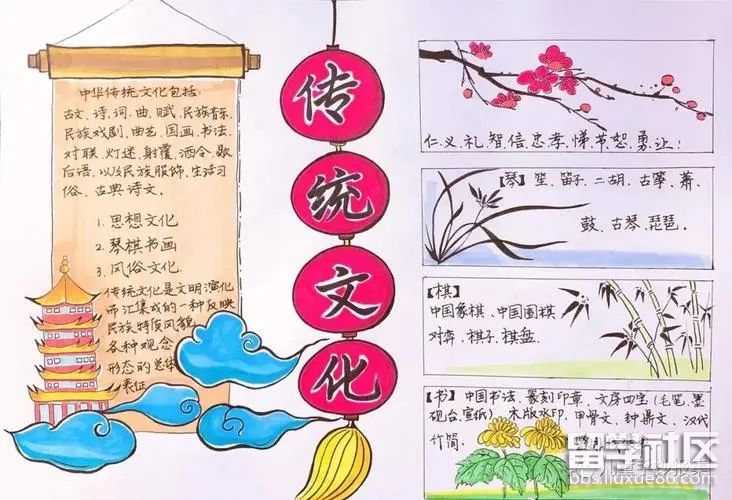 中华传统文化包括:
古文、诗、词、曲、赋、民族音乐、
民族戏剧、曲艺、国画、书法、
对联、灯迷、射覆、酒令、歇
后语、以及民族服饰、生活习
俗、古典诗文.
1. 思想文化
2. 琴棋书画
3. 风俗文化.
传统文化是文明演化
而汇集成的一种反映
民族特质风貌
各种观念
形态的总体
表征
传
统
文
化
仁、义、礼、智、信、忠、孝、悌、节、恕、勇、让;
【琴】笙、笛子、二胡、古筝、萧、
鼓、古琴、琵琶.
【棋】
中国象棋、中国围棋
对弈、棋子、棋盘.
【书】中国书法、篆刻印章、文房四宝(毛笔、墨
砚台、宣纸)、木版水印、甲骨文、钟鼎文、汉代
竹简、
留学社区
bbs.liuxue86.com